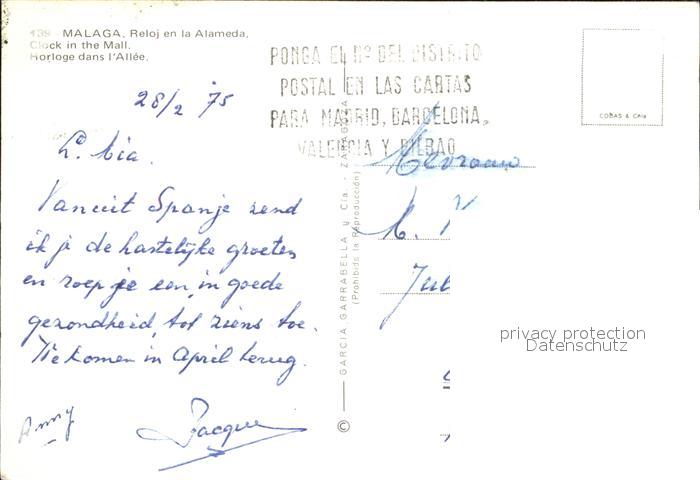 139 - MALAGA. Reloj en la Alameda.
Clock in the Mall.
Horloge dans l'Allée.
PONGA EL Nº DEL DISTRITO
POSTAL EN LAS CARTAS
PARA MADRID, BARCELONA,
VALENCIA Y BILBAO
COBAS & Cñia
28/2 '75
L. Mia.
Vanuit Spanje zend
ik je de hartelijke groeten
en roep je een, in goede
gezondheid, tot ziens toe.
We komen in April terug.
Anny
Jacque
© GARCIA GARRABELLA y Cía. - ZARAGOZA
(Prohibida la Reproducción)
Mevrouw
M.
Jul
privacy protection
Datenschutz